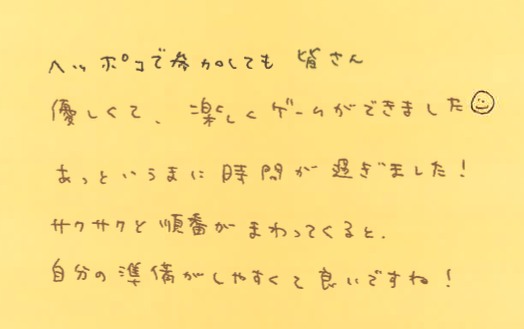 ヘッポコで参加しても 皆さん
優しくて、楽しくゲームができました☺
あっというまに時間が過ぎました！
サクサクと順番がまわってくると、
自分の準備がしやすくて良いですね！